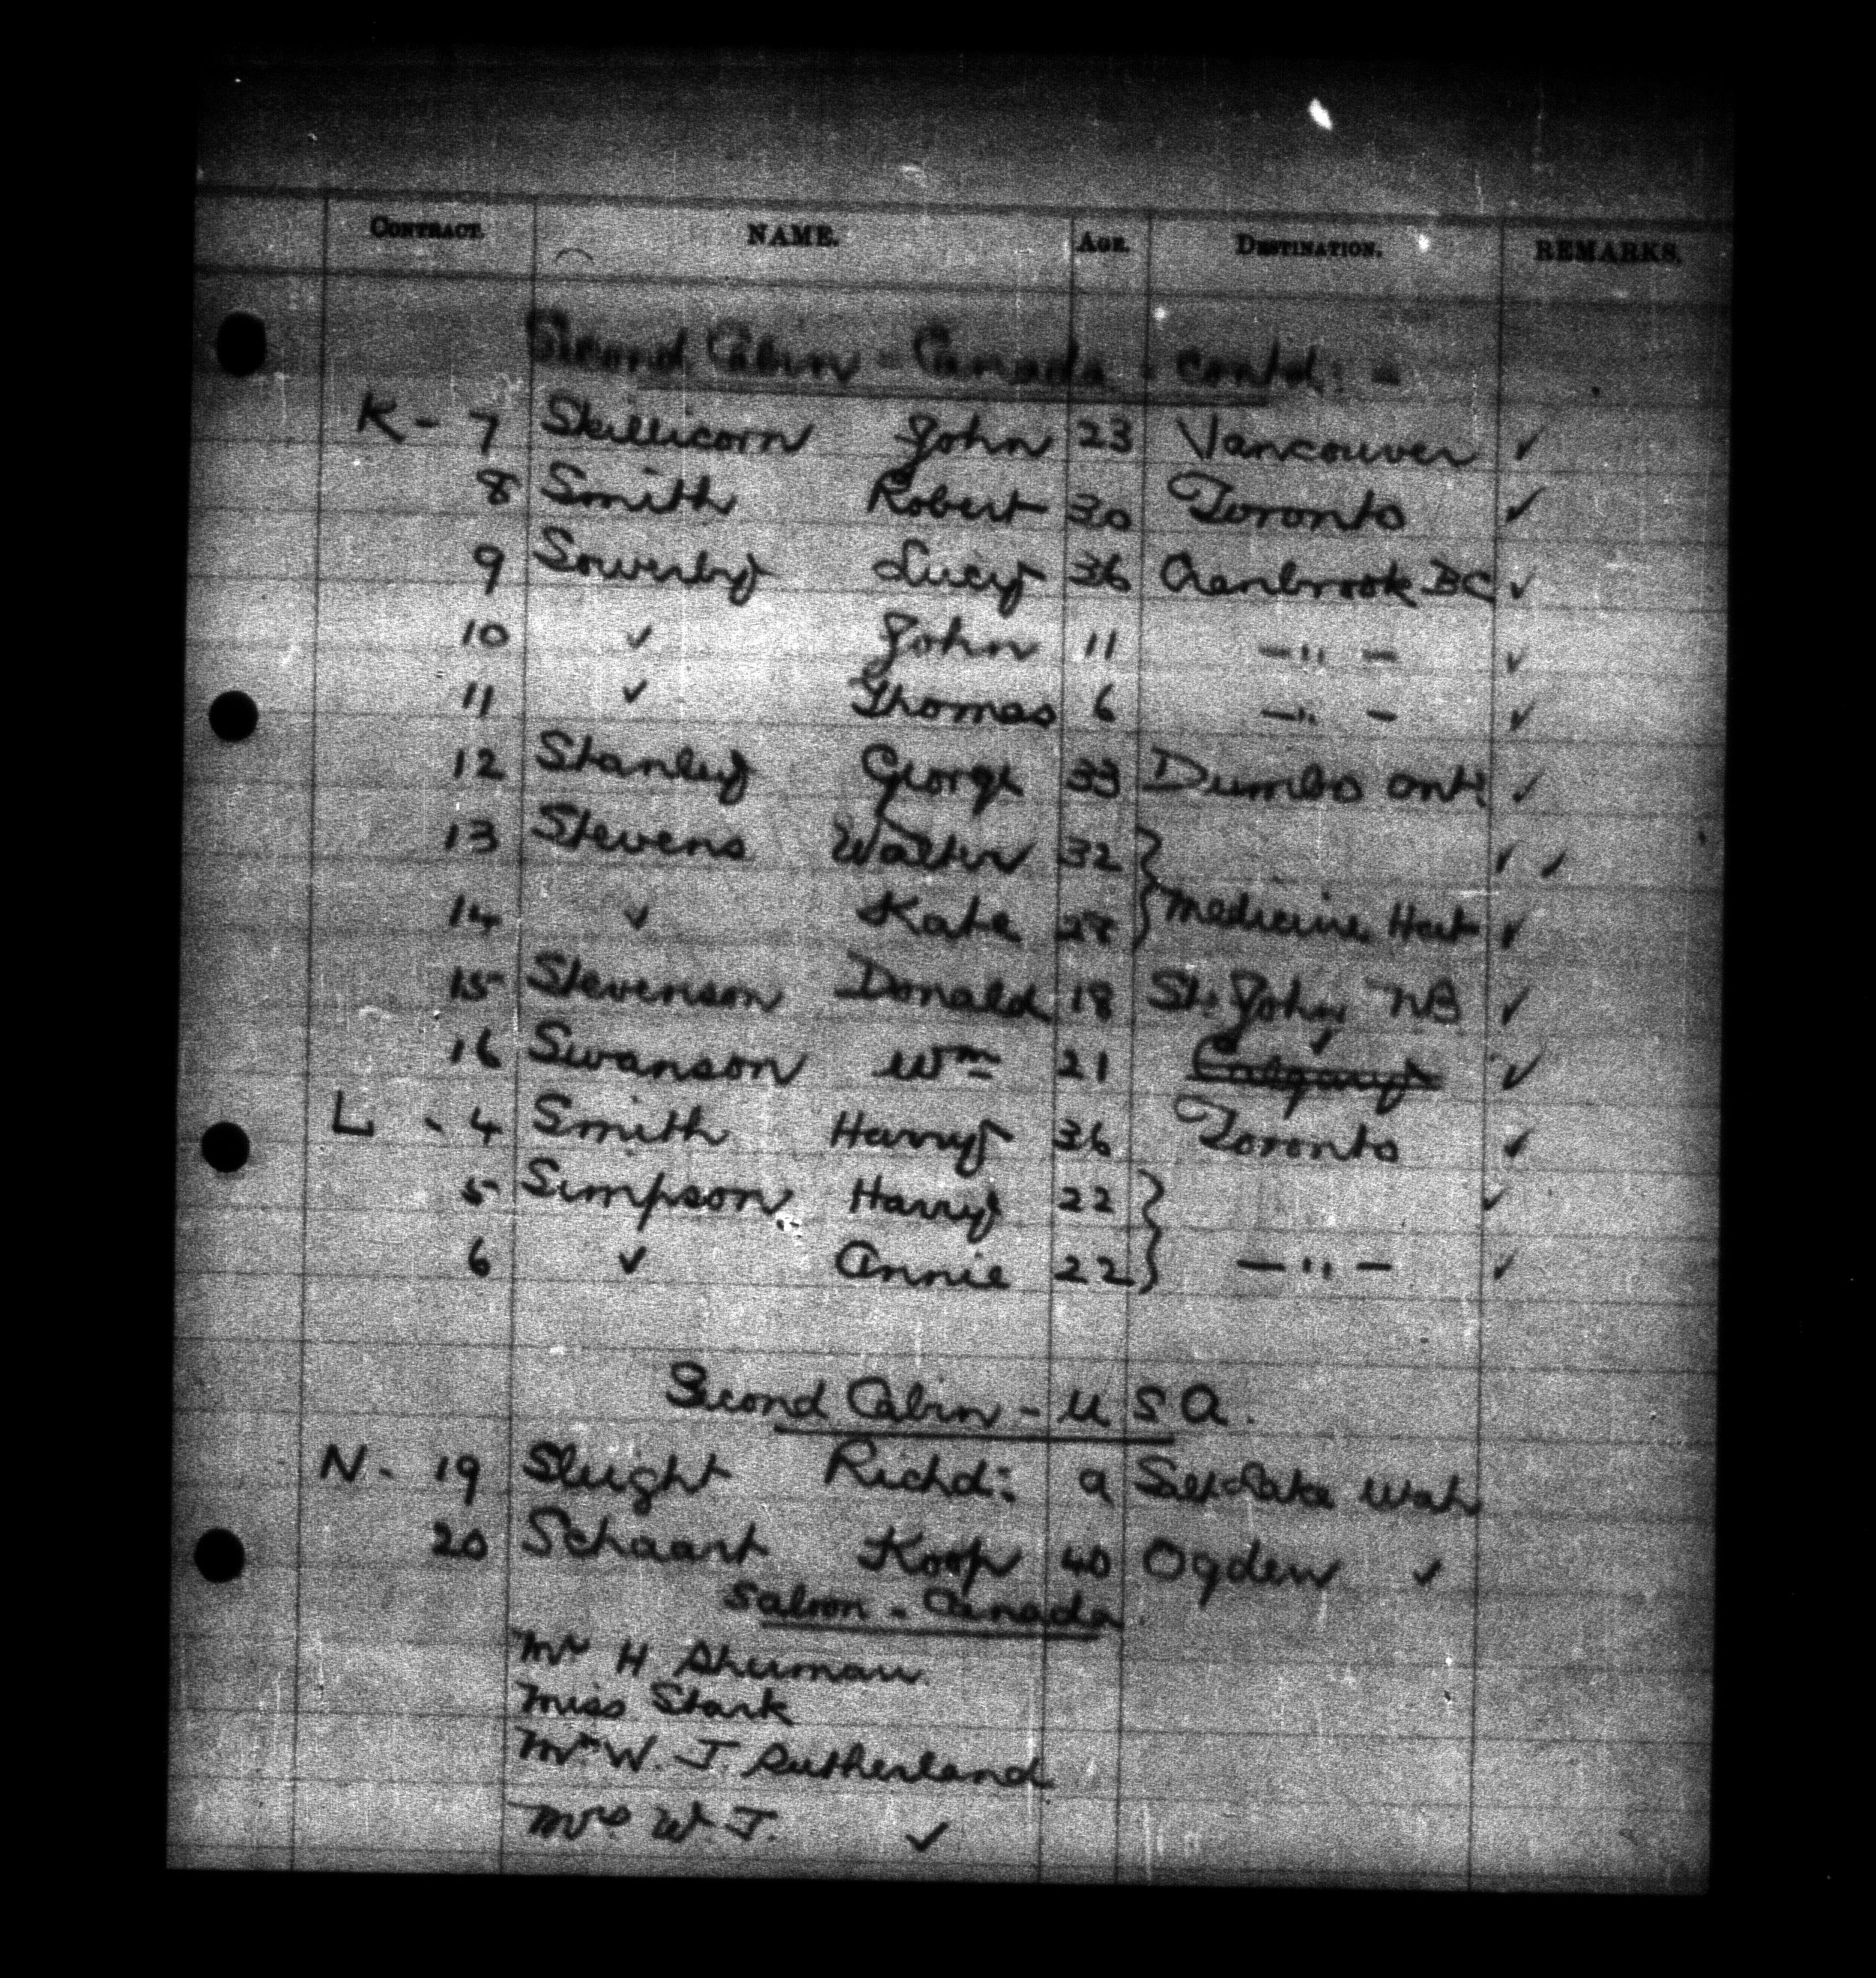 CONTRACT. NAME. AGE. DESTINATION. REMARKS.
Second Cabin - Canada - contd: -
K - 7 Skillicorn John 23 Vancouver ✓
8 Smith Robert 30 Toronto ✓
9 Sowerby Lucy 36 Cranbrook BC ✓
10 ✓ John 11 - " - ✓
11 ✓ Thomas 6 - " - ✓
12 Stanley George 33 Dumbo Ont ✓
13 Stevens Walter 32 } ✓ ✓
14 ✓ Kate 28 } Medicine Hat ✓
15 Stevenson Donald 18 St. John NB ✓
16 Swanson Wm 21 Calgary ✓
L - 4 Smith Harry 36 Toronto ✓
5 Simpson Harry 22 } ✓
6 ✓ Annie 22 } - " - ✓
Second Cabin - U S A.
N - 19 Sleight Richd: 9 Salt Lake Utah
20 Schaart Koop 40 Ogden ✓
Saloon - Canada.
Mr H Sherman.
Miss Stark
Mr W. J. Sutherland
Mrs W. J. ✓